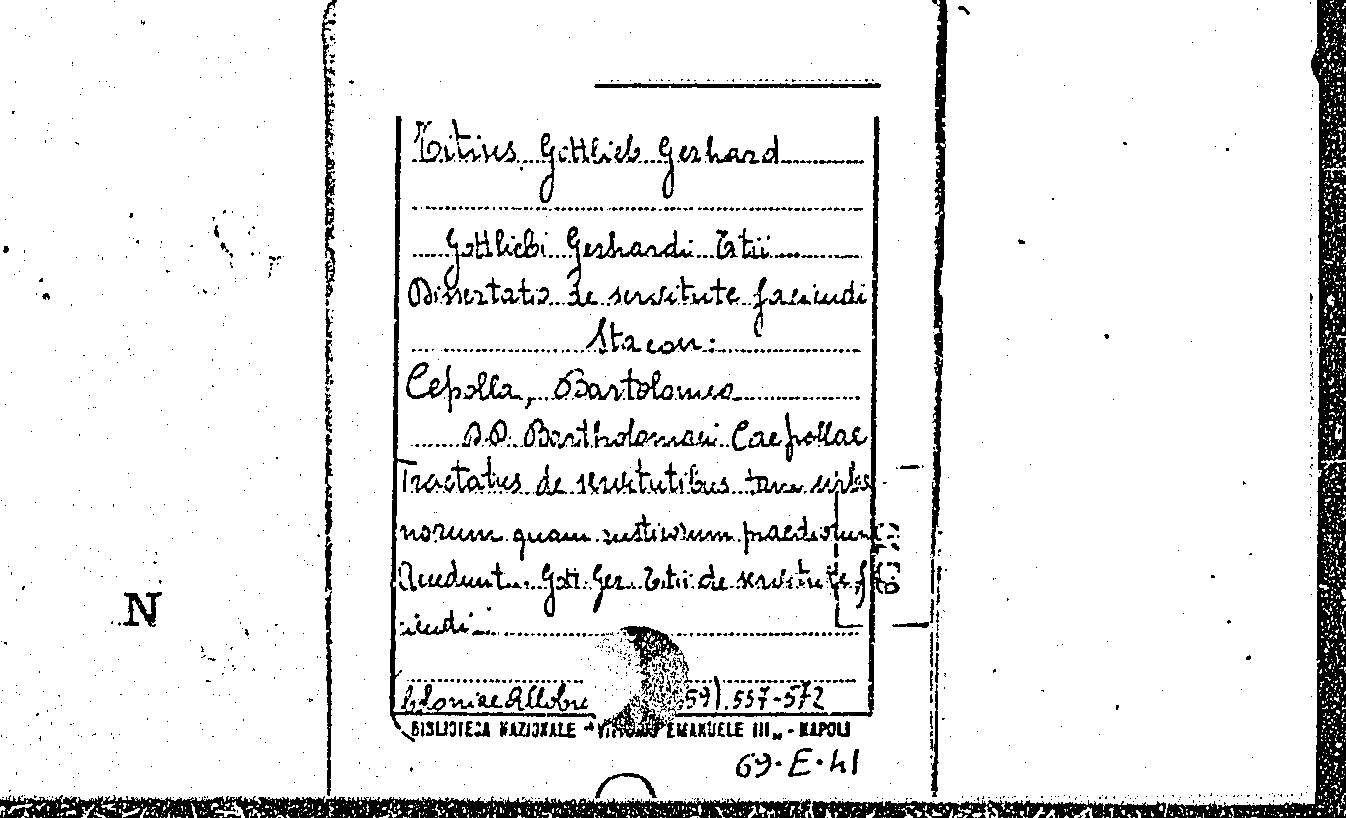 Titius Gottlieb Gerhard
Gottliebi Gerhardi Titii
Dissertatio de servitute faciendi
Stacou:
Cepolla, Bartolomeo
D.D. Bartholomaei Caepollae
Tractatus de servitutibus tam urba
norum quam rusticorum praediorum
Accedunt.. Gott. Ger. Titii de servitute f
ciendi...
Coloniae Allobro 59). 557-572
BIBLIOTECA NAZIONALE "VITTORIO EMANUELE III" - NAPOLI
69.E.41
N